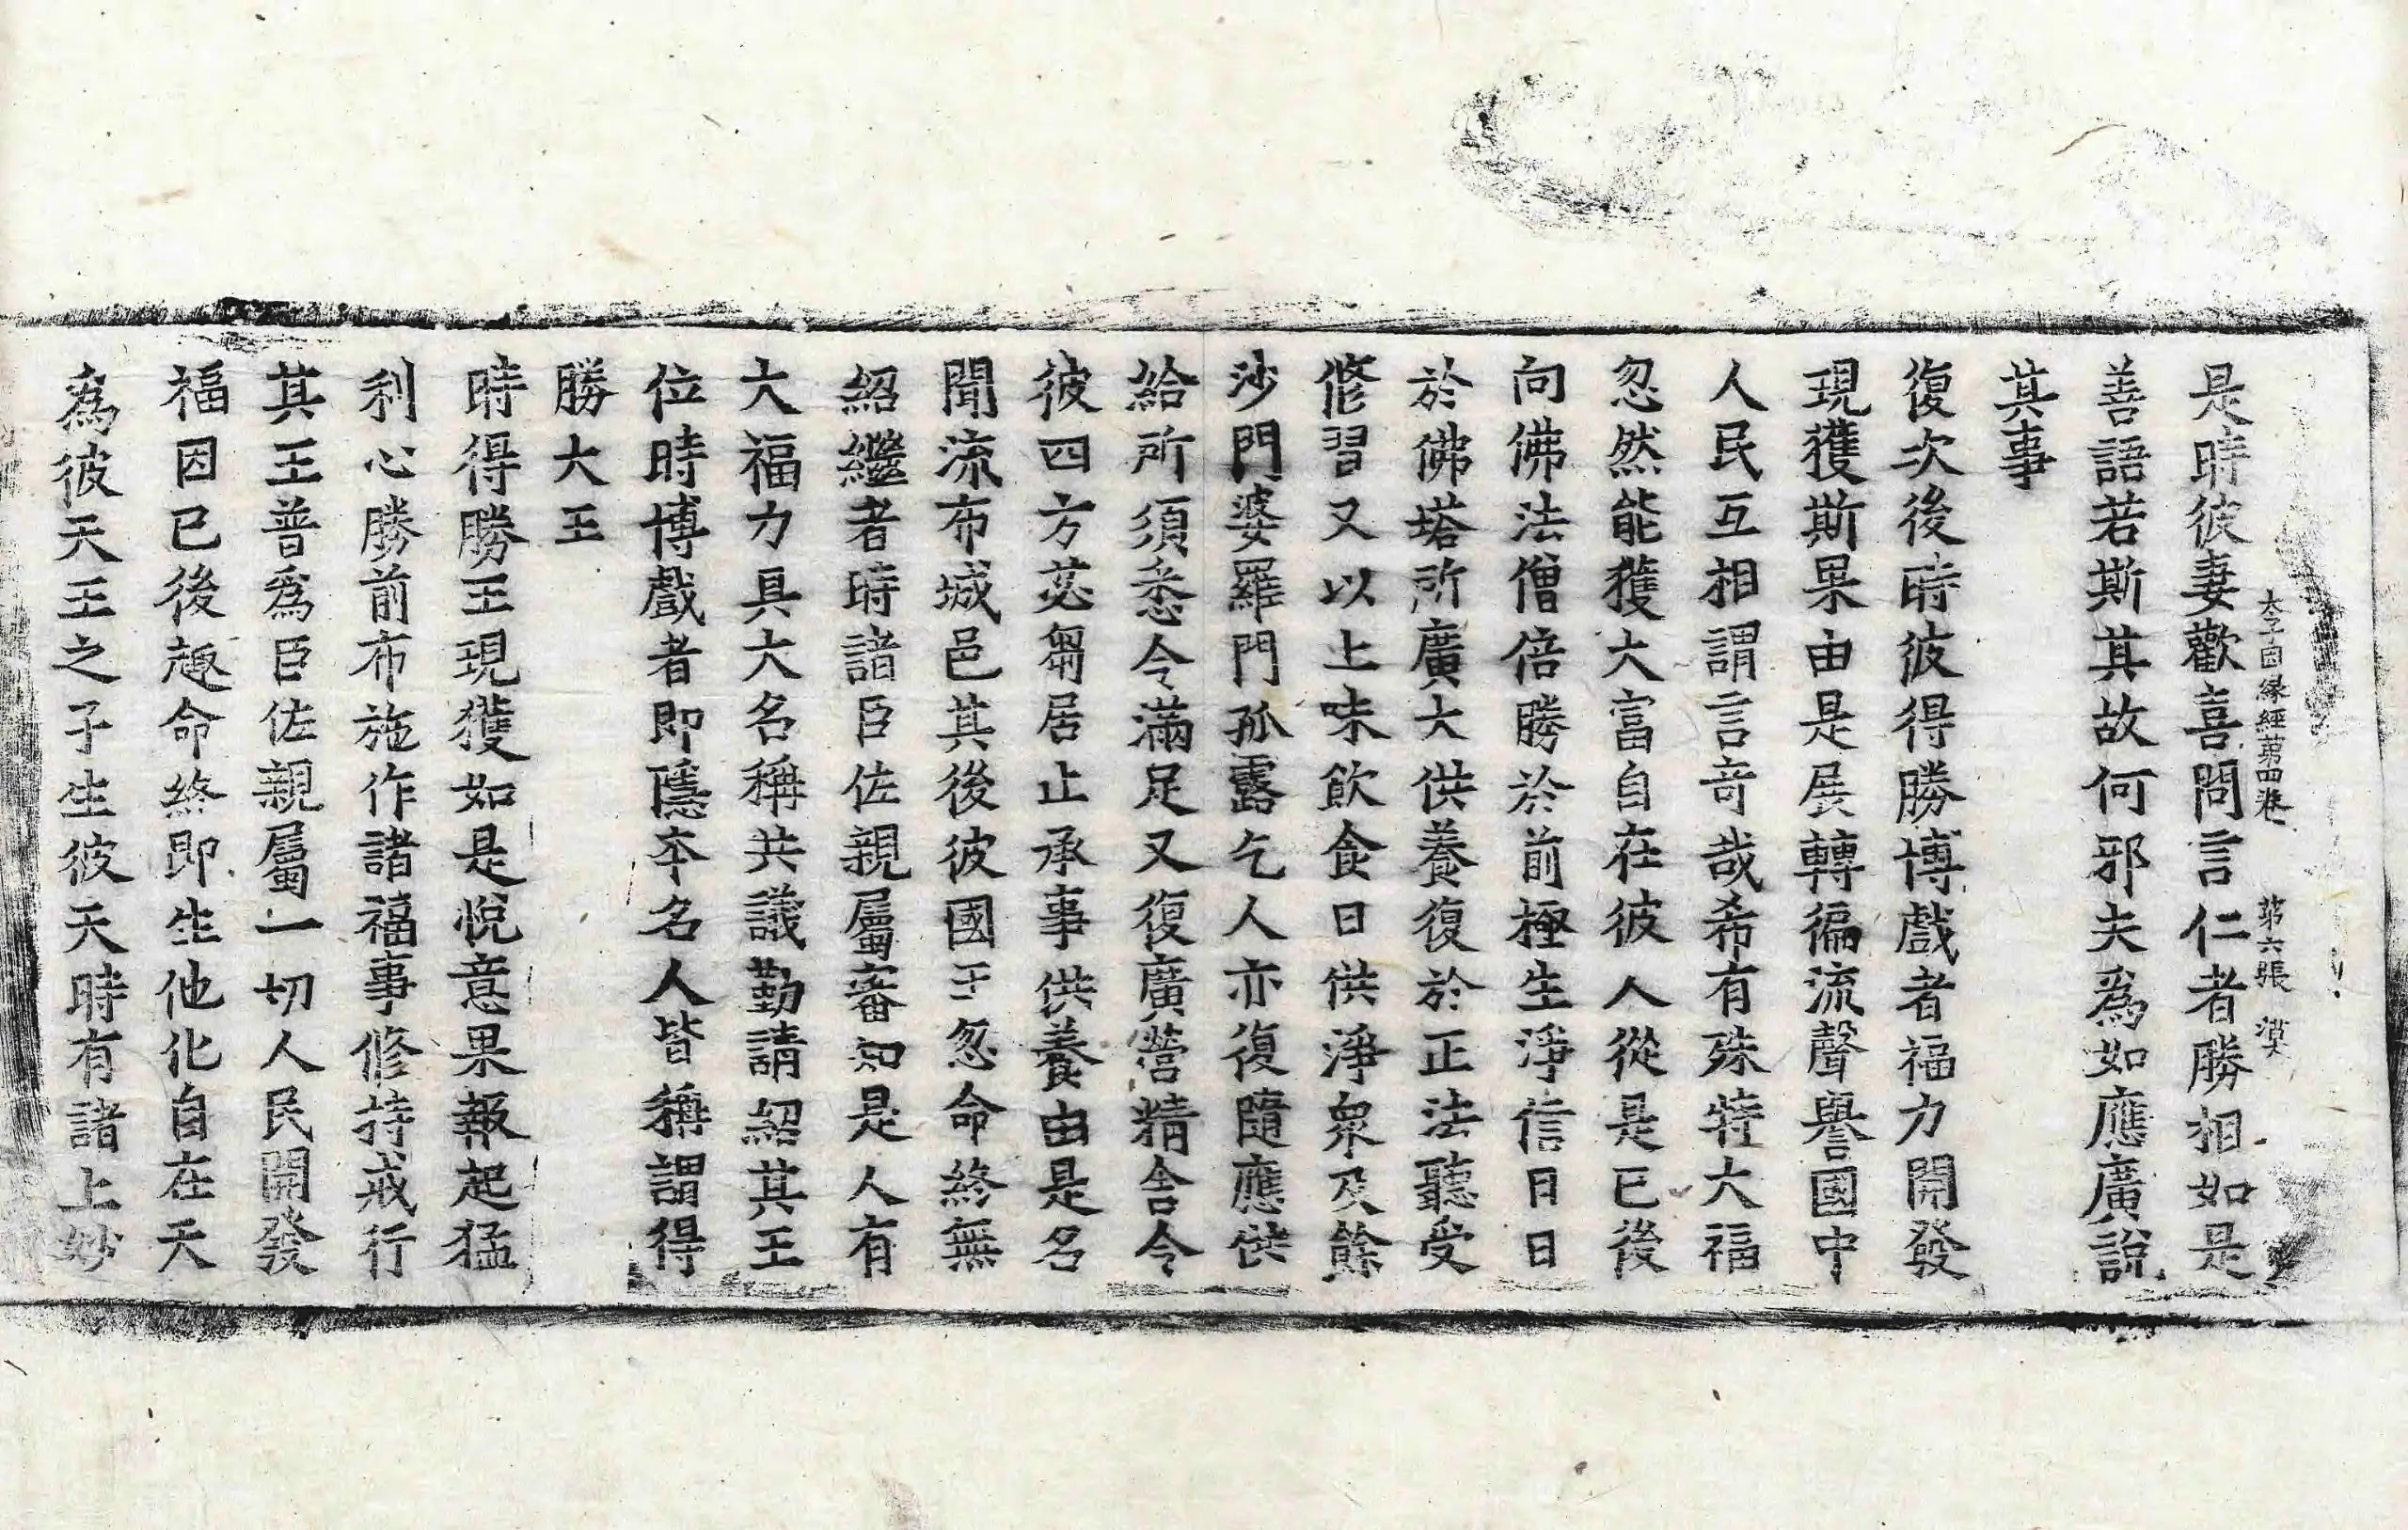 太子因縁經第四卷 第六張 漠
是時彼妻歡喜問言仁者勝相如是
善語若斯其故何邪夫爲如應廣說
其事
復次後時彼得勝博戲者福力開發
現獲斯果由是展轉徧流聲譽國中
人民互相謂言奇哉希有殊特大福
忽然能獲大富自在彼人從是已後
向佛法僧倍勝於前極生淨信日日
於佛塔所廣大供養復於正法聽受
修習又以上味飲食日供淨衆及餘
沙門婆羅門孤露乞人亦復隨應供
給所須悉令滿足又復廣營精舍令
彼四方苾芻居止承事供養由是名
聞流布城邑其後彼國王忽命終無
紹繼者時諸臣佐親屬審知是人有
大福力具大名稱共議勤請紹其王
位時博戲者即隱本名人皆稱謂得
勝大王
時得勝王現獲如是悅意果報起猛
利心勝前布施作諸福事修持戒行
其王普爲臣佐親屬一切人民開發
福因已後趣命終即生他化自在天
爲彼天王之子生彼天時有諸上妙